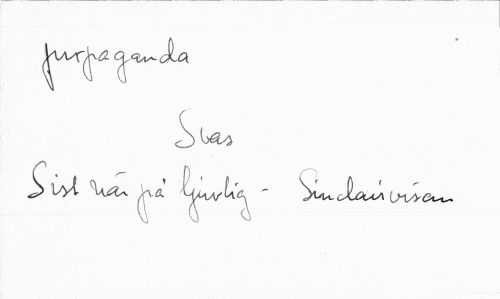 purpaganda
Svas
Sist när på ljuvlig - Sinclairvisan